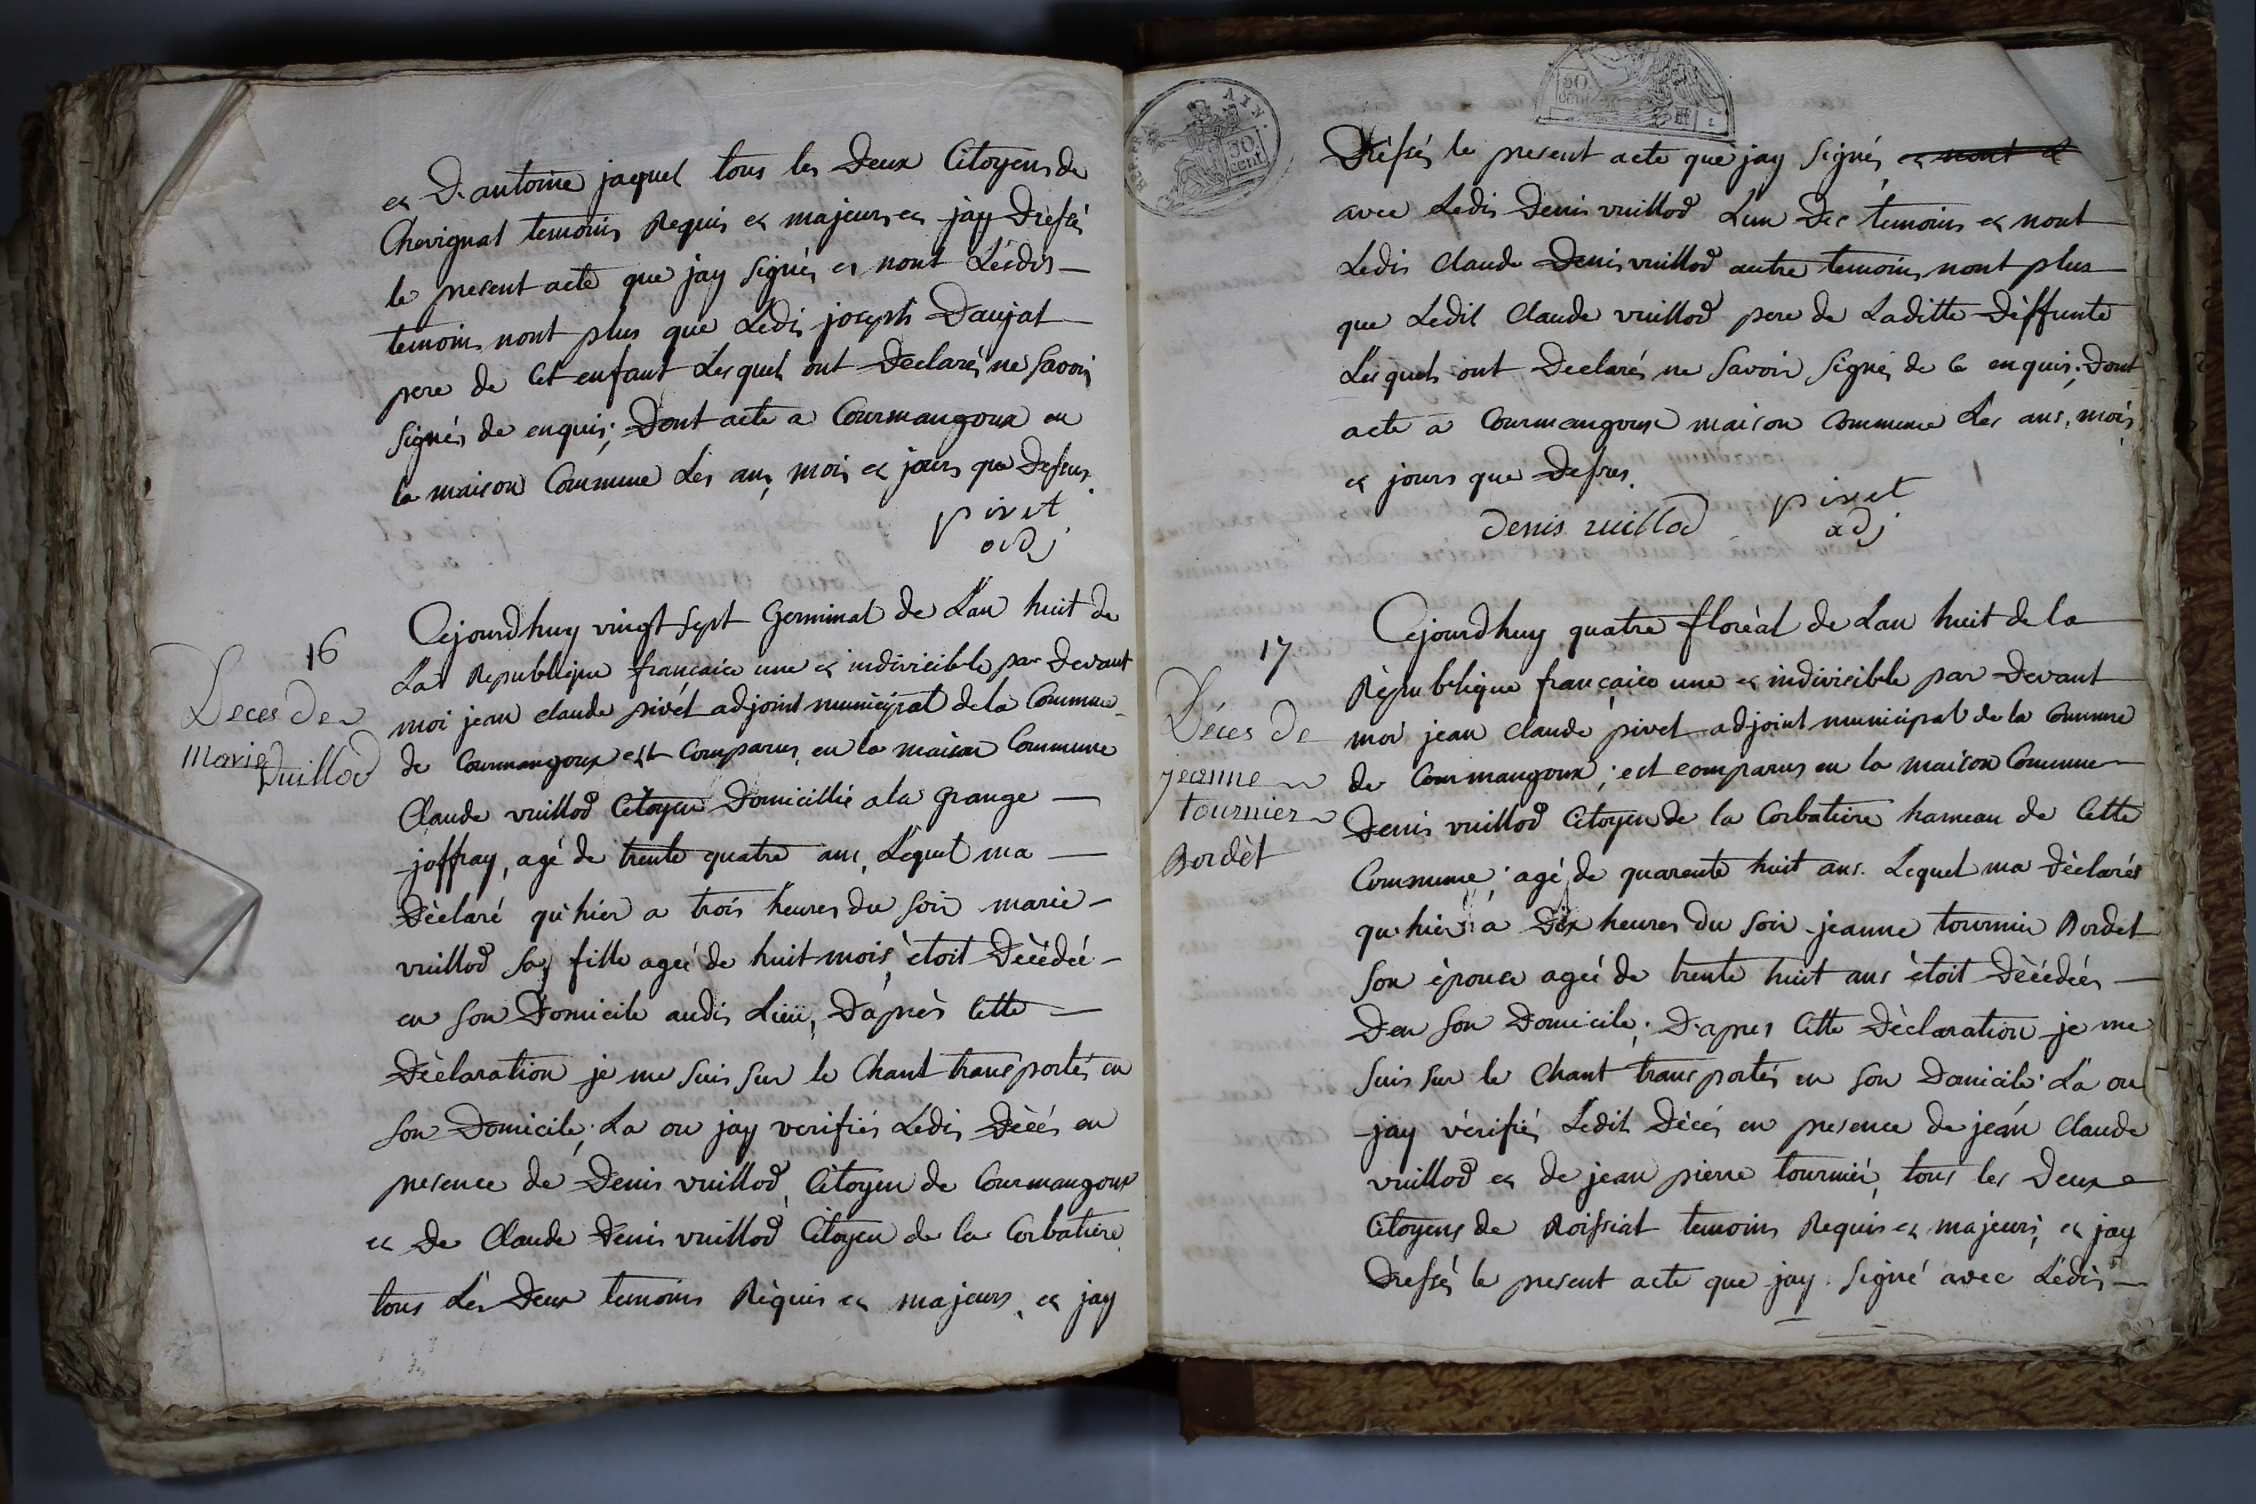 et D'antoine jaquet tous les Deux Citoyens de
Chevignat temoins Requis et majeurs et jay Dressés
le present acte que jay signés et nont Lésdis
temoins nont plus que Ledis joseph Daujat
pere de Cet enfant Lesquels ont Declarés ne savoir
signés de enquis; Dont acte a Courmangoux en
la maison Commune Les ans, mois et jours que Dessus.
pivet
adj
16
Deces De
Marie
Vuillod
Cejourdhuy vingt sept Germinal de L'an huit de
La Republique francaice une et indivicible par Devant
moi jean claude pivét adjoint municipal de la Commune
de Courmangoux est Comparus, en la maison Commune
Claude vuillod Citoyen Domicillié a la Grange
joffray, agé de trente quatre ans, Lequel ma
Dèclaré qu'hier a trois heures du soir marie
vuillod sa fille ageé de huit mois, ètoit Dècédeé
en son Domicile audis Lieu, D'après Cette
Dèclaration je me suis sur le Chant transportés en
son Domicile; La ou jay verifiés Ledis Dècés en
presence de Denis vuillod, Citoyen de Courmangoux
et De Claude Denis vuillod Citoyen de la Corbatiere
tous Lès Deux temoins Rèquis et majeurs, et jay
BENT. NAT. AIN.
50
cent
50
cent
Drèssés le present acte que jay signés, et nont et
avec Ledis Denis vuillod L'un Des temoins et nont
Ledis Claude Denis vuillod autre temoins, nont plus
que Ledit Claude vuillod pere de Laditte Dèffunte
Lesquels ont Declarés ne savoir signés de ce enquis; Dont
acte a Courmangoux maison Commune Les ans, mois,
et jours que Dessus.
denis vuillod
pivet
adj
17
Déces de
jeanne
tournier
Bordèt
Cejourdhuy quatre florèal de Lan huit de la
Rèpublique françaice une et indivicible par Devant
moi jean claude pivet adjoint municipal de la Commune
de Courmangoux; est comparus en la maison Commune
Denis vuillod Citoyen de la Corbatiere hameau de Cette
Commune; agé de quarente huit ans. Lequel ma Dèclarés
qu'hier a Dix heures du soir jeanne tournier Bordet
son èpouce ageé de trente huit ans ètoit Dècédeés
D'en son Domicile; D'apres Cette Dèclaration je me
suis sur le Chant transportés en son Domicile; La ou
jay vérifiés Ledit Dècés en presence de jean Claude
vuillod et de jean pierre tournier, tous les Deux
Citoyens de Roissiat temoins Requis et majeurs; et jay
Dressés le present acte que jay signé avec Lédis